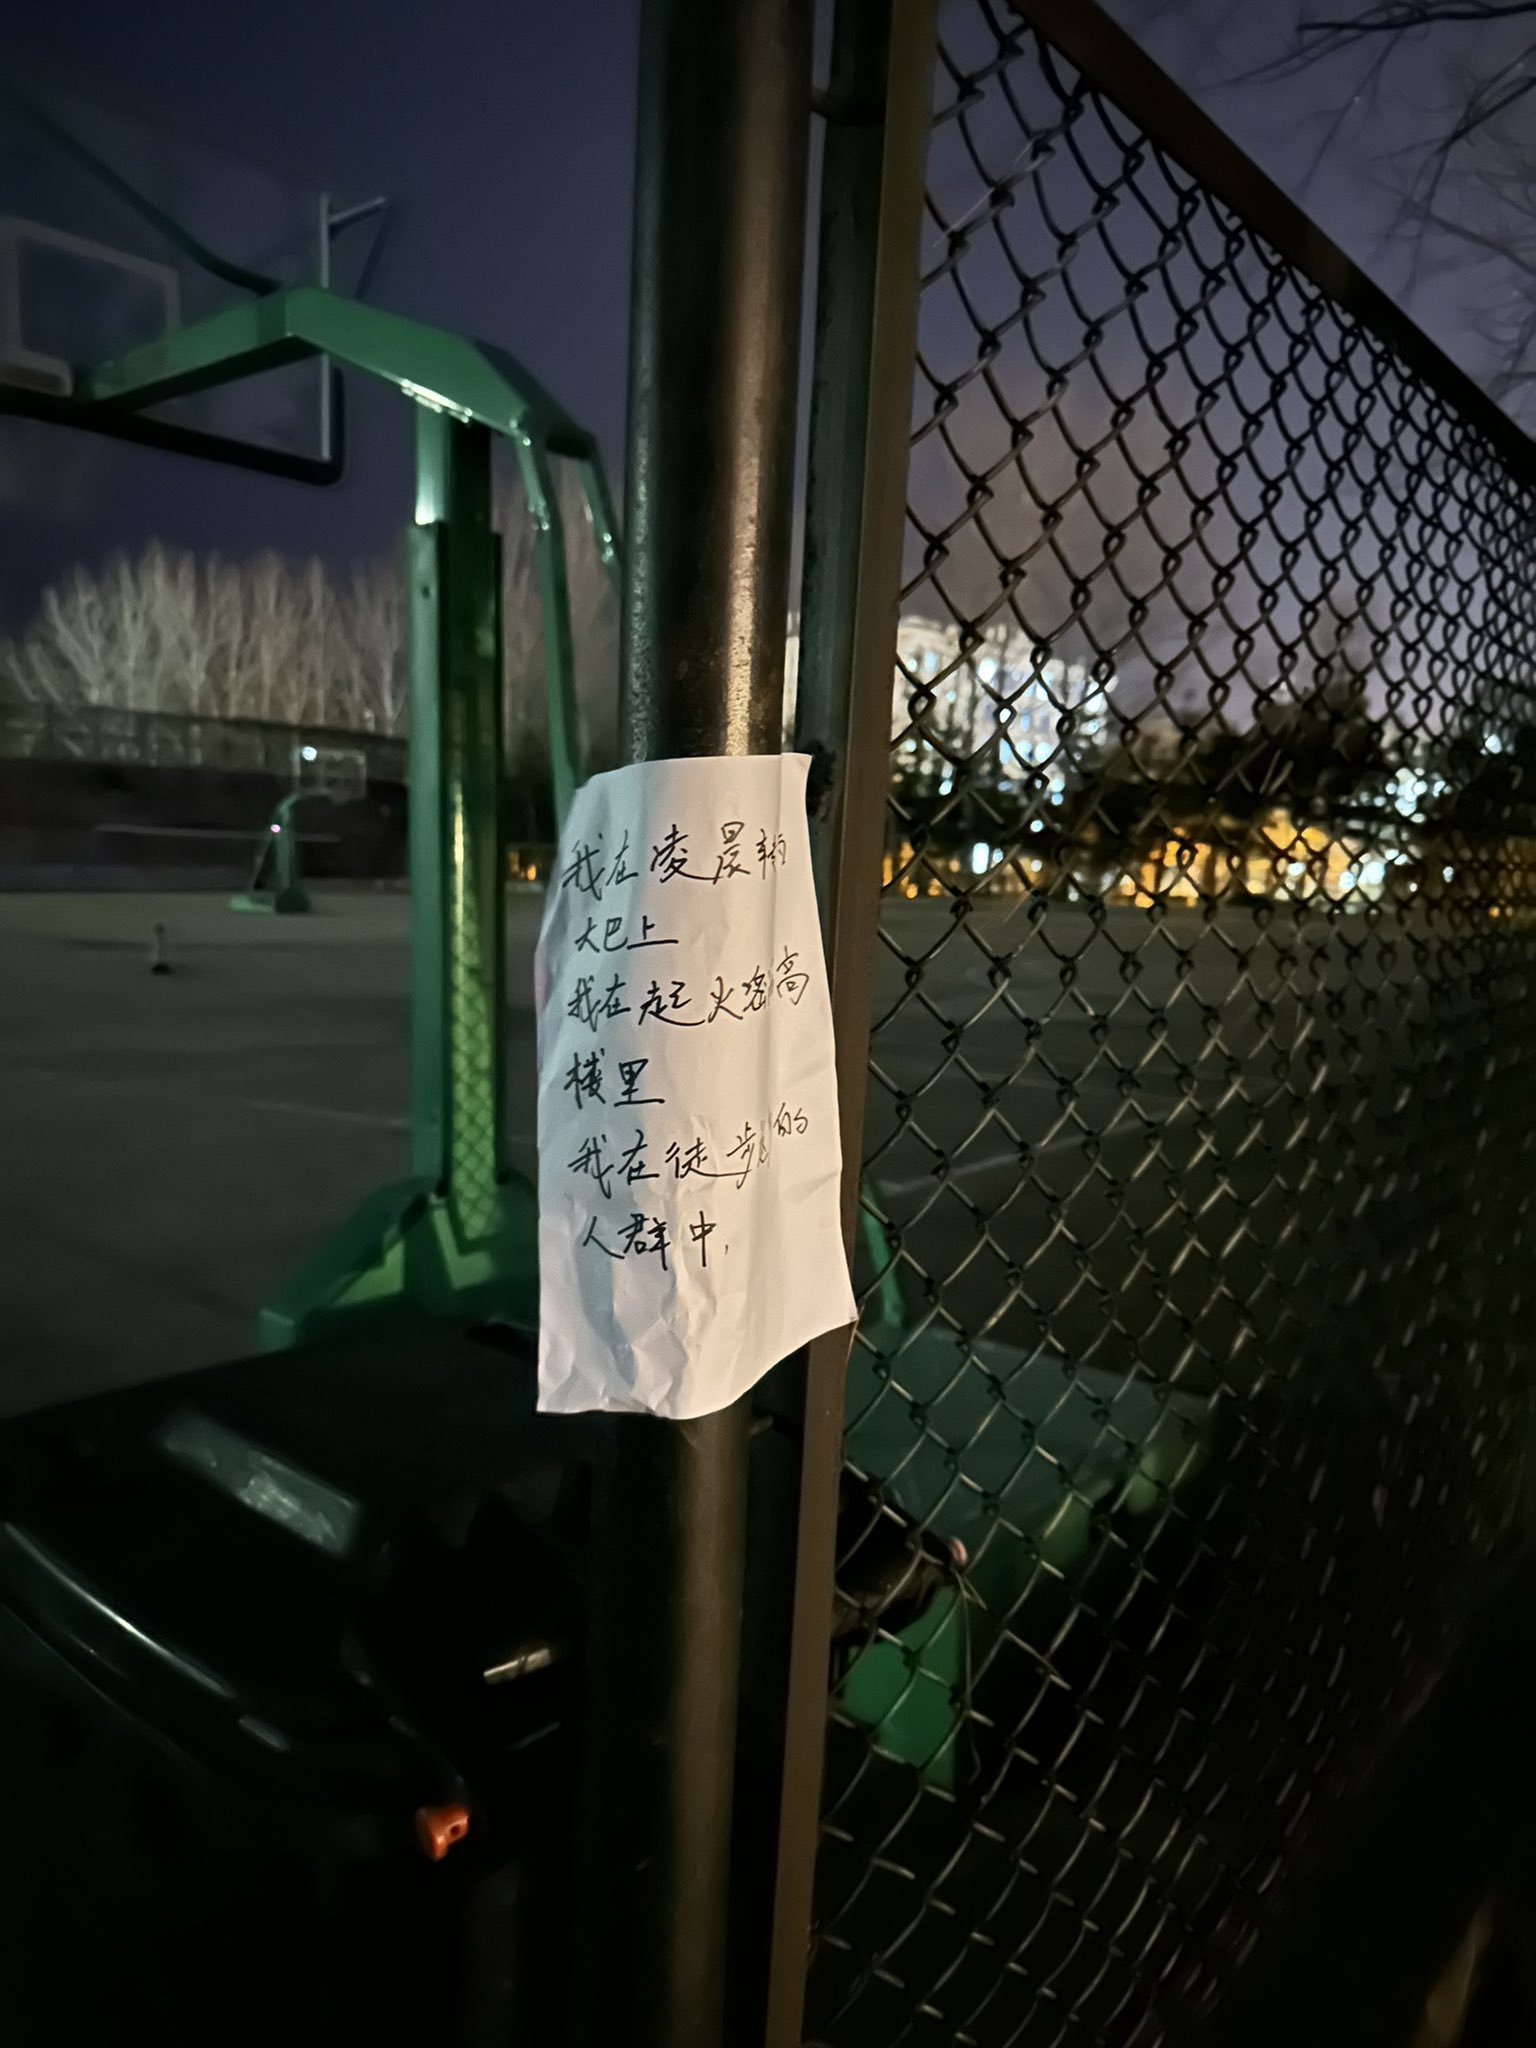 我在凌晨转
大巴上
我在起火的高
楼里
我在徒步的
人群中,